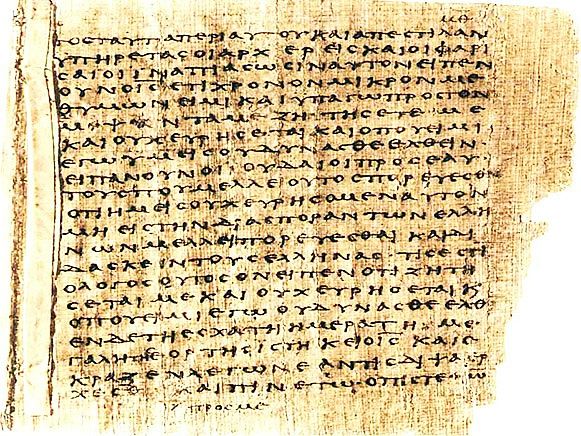 ΜΘ
ΤΟΣ ΤΑΥΤΑ ΠΕΡΙ ΑΥΤΟΥ ΚΑΙ ΑΠΕΣΤΙΛΑΝ
ΥΠΗΡΕΤΑΣ ΟΙ ΑΡΧΙΕΡΕΙΣ ΚΑΙ ΟΙ ΦΑΡΙ
ΣΑΙΟΙ ΙΝΑ ΠΙΑΣΩΣΙΝ ΑΥΤΟΝ ΕΙΠΕΝ
ΟΥΝ Ο ΙΣ ΕΤΙ ΧΡΟΝΟΝ ΜΙΚΡΟΝ ΜΕ
Θ ΥΜΩΝ ΕΙΜΙ ΚΑΙ ΥΠΑΓΩ ΠΡΟΣ ΤΟΝ
ΠΕΜΨΑΝΤΑ ΜΕ ΖΗΤΗΣΕΤΕ ΜΕ
ΚΑΙ ΟΥΧ ΕΥΡΗΣΕΤΑΙ ΚΑΙ ΟΠΟΥ ΕΙΜΙ
ΕΓΩ ΥΜΕΙΣ ΟΥ ΔΥΝΑΣΘΕ ΕΛΘΕΙΝ
ΕΙΠΑΝ ΟΥΝ ΟΙ ΙΟΥΔΑΙΟΙ ΠΡΟΣ ΕΑΥ
ΤΟΥΣ ΠΟΥ ΜΕΛΛΕ ΟΥΤΟΣ ΠΟΡΕΥΕΣΘΑΙ
ΟΤΙ ΗΜΕΙΣ ΟΥΧ ΕΥΡΗΣΟΜΕΝ ΑΥΤΟΝ
ΜΗ ΕΙΣ ΤΗΝ ΔΙΑΣΠΟΡΑΝ ΤΩΝ ΕΛΛΗ
ΝΩΝ ΜΕΛΛΕΙ ΠΟΡΕΥΕΣΘΑΙ ΚΑΙ ΔΙ
ΔΑΣΚΕΙΝ ΤΟΥΣ ΕΛΛΗΝΑΣ ΤΙΣ ΕΣΤΙ
Ο ΛΟΓΟΣ ΟΥΤΟΣ ΟΝ ΕΙΠΕΝ ΟΤΙ ΖΗΤΗ
ΣΕΤΑΙ ΜΕ ΚΑΙ ΟΥΧ ΕΥΡΗΣΕΤΑΙ Κ
ΟΠΟΥ ΕΙΜΙ ΕΓΩ ΟΥ ΔΥΝΑΣΘΕ ΕΛΘ
ΕΝ ΔΕ ΤΗ ΕΣΧΑΤΗ ΗΜΕΡΑ ΤΗ ΜΕ
ΓΑΛΗ ΤΗΣ ΕΟΡΤΗΣ ΙΣΤΗΚΕΙ Ο ΙΣ ΚΑΙ Ε
ΚΡΑΖΕΝ ΛΕΓΩΝ ΕΑΝ ΤΙΣ ΔΙΨΑ ΕΡ
ΧΕΣΘΩ ΚΑΙ ΠΙΝΕΤΩ Ο ΠΙΣΤΕΥΩ
ΠΡΟΣ ΜΕ